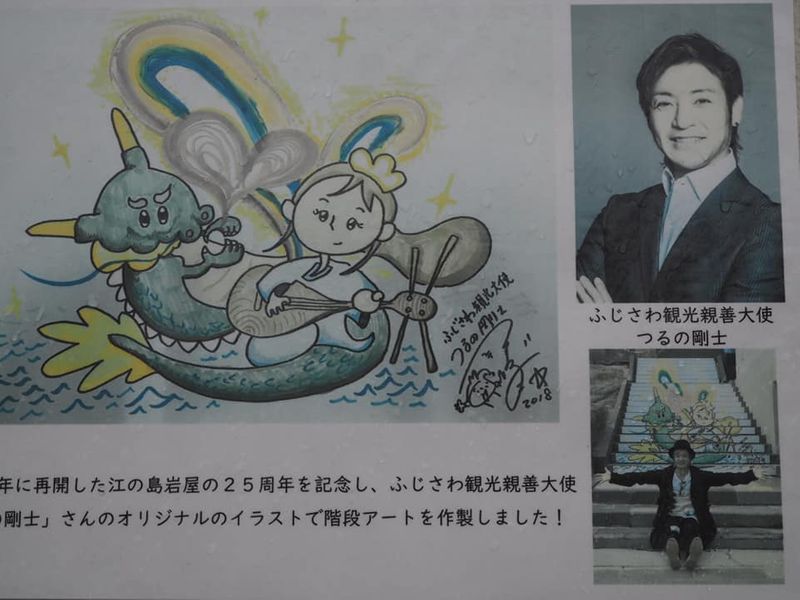 ふじさわ観光大使
つるの剛士
2018
ふじさわ観光親善大使
つるの剛士
年に再開した江の島岩屋の２５周年を記念し、ふじさわ観光親善大使
の剛士」さんのオリジナルのイラストで階段アートを作製しました！